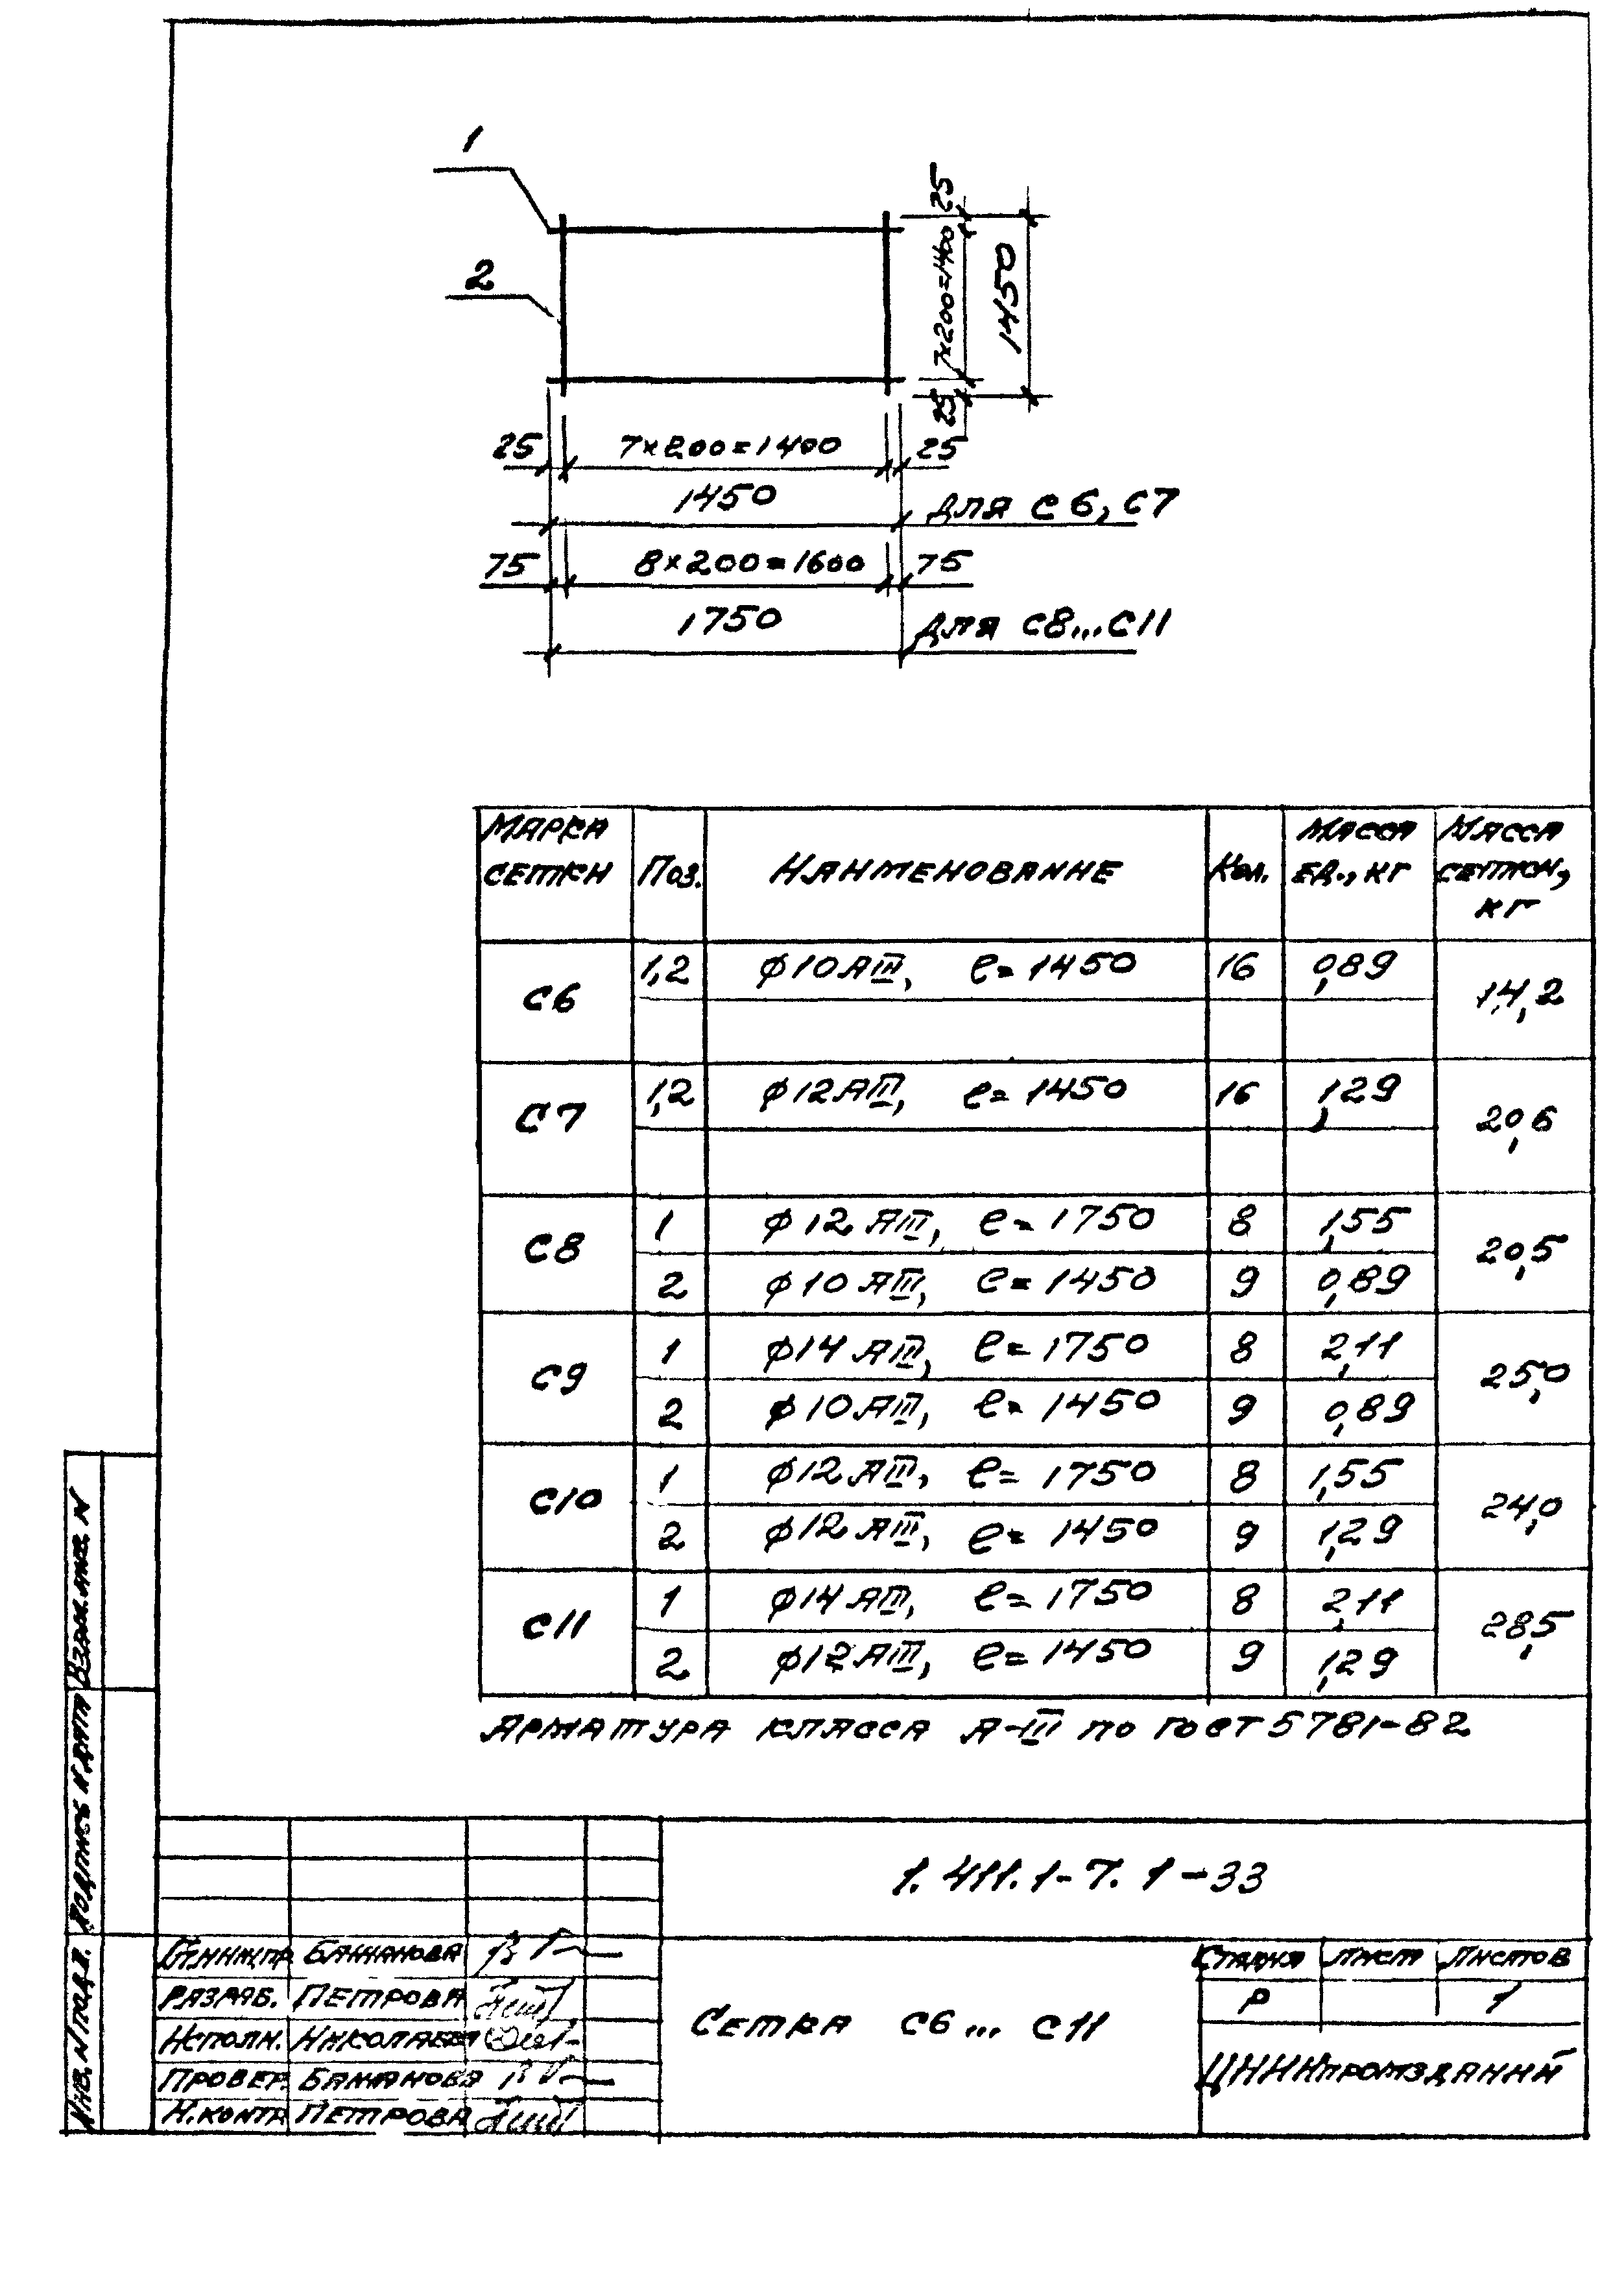 1
2
25
7×200=1400
1450
25
25 7×200=1400 25
1450 для С6, С7
75 8×200=1600 75
1750 для С8...С11
Марка сетки Поз. Наименование Кол. Масса ед., кг Масса сетки, кг
С6 1,2 ϕ10АIII, ℓ=1450 16 0,89 14,2
С7 1,2 ϕ12АIII, ℓ=1450 16 1,29 20,6
С8 1 ϕ12АIII, ℓ=1750 8 1,55 20,5
2 ϕ10АIII, ℓ=1450 9 0,89
С9 1 ϕ14АIII, ℓ=1750 8 2,11 25,0
2 ϕ10АIII, ℓ=1450 9 0,89
С10 1 ϕ12АIII, ℓ=1750 8 1,55 24,0
2 ϕ12АIII, ℓ=1450 9 1,29
С11 1 ϕ14АIII, ℓ=1750 8 2,11 28,5
2 ϕ12АIII, ℓ=1450 9 1,29
Арматура класса А-III по ГОСТ 5781-82
Взам. инв. N
Подпись и дата
Инв. N подл.
1.411.1-7.1-33
Гл.инж.пр. Бажанова
Разраб. Петрова
Исполн. Николаева
Провер. Бажанова
Н.контр. Петрова
Сетка С6... С11
Стадия Лист Листов
Р 1
ЦНИИпромзданий